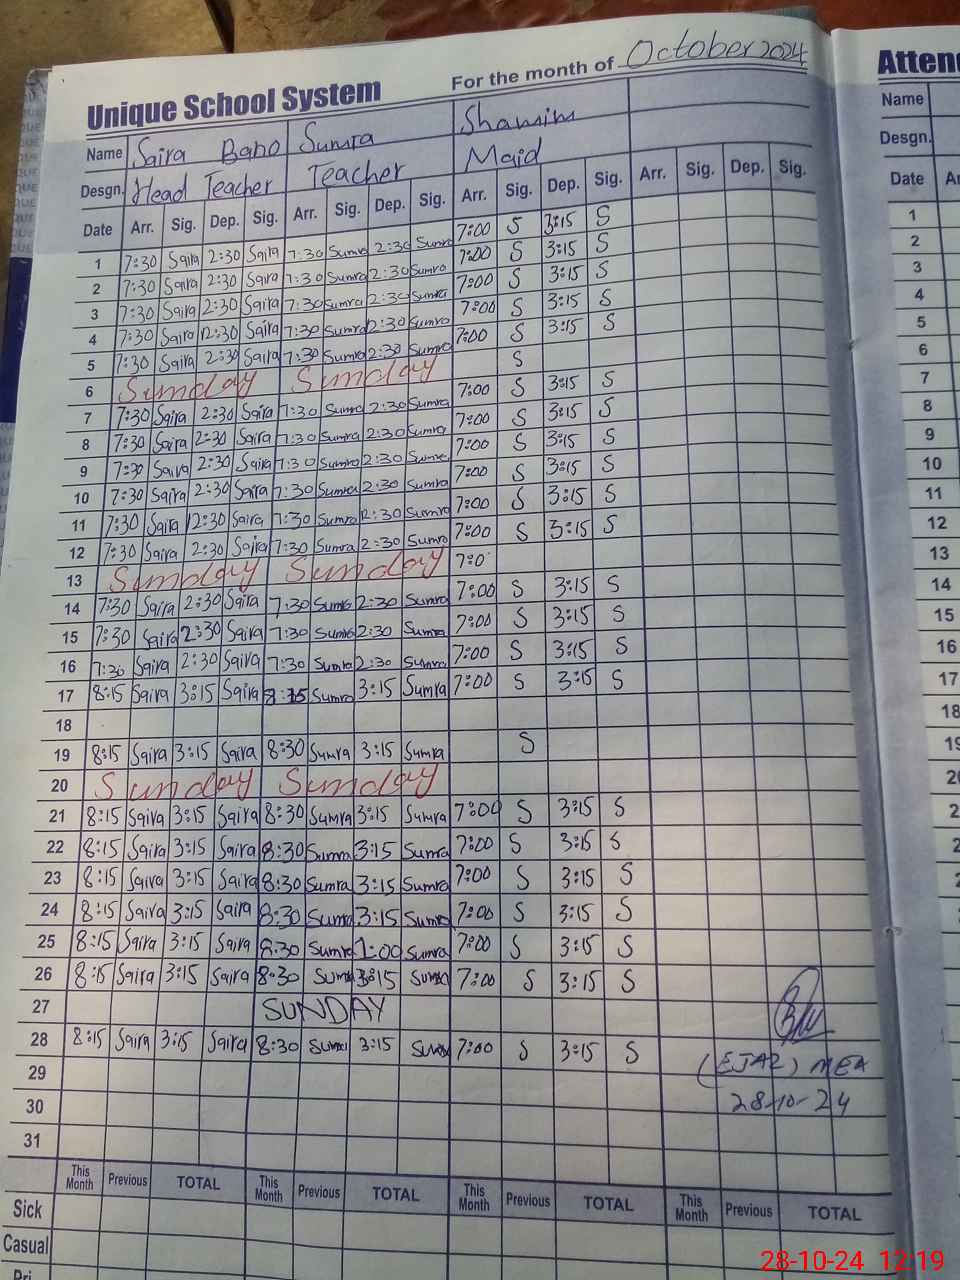 Unique School System For the month of October 2024
Name Saira Bano Sumra Shamim
Desgn. Head Teacher Teacher Maid
Date Arr. Sig. Dep. Sig. Arr. Sig. Dep. Sig. Arr. Sig. Dep. Sig. Arr. Sig. Dep. Sig.
1 7:30 Saira 2:30 Saira 7:30 Sumra 2:30 Sumra 7:00 S 3:15 S
2 7:30 Saira 2:30 Saira 7:30 Sumra 2:30 Sumra 7:00 S 3:15 S
3 7:30 Saira 2:30 Saira 7:30 Sumra 2:30 Sumra 7:00 S 3:15 S
4 7:30 Saira 2:30 Saira 7:30 Sumra 2:30 Sumra 7:00 S 3:15 S
5 7:30 Saira 2:30 Saira 7:30 Sumra 2:30 Sumra 7:00 S 3:15 S
6 Sunday Sunday S
7 7:30 Saira 2:30 Saira 7:30 Sumra 2:30 Sumra 7:00 S 3:15 S
8 7:30 Saira 2:30 Saira 7:30 Sumra 2:30 Sumra 7:00 S 3:15 S
9 7:30 Saira 2:30 Saira 7:30 Sumra 2:30 Sumra 7:00 S 3:15 S
10 7:30 Saira 2:30 Saira 7:30 Sumra 2:30 Sumra 7:00 S 3:15 S
11 7:30 Saira 2:30 Saira 7:30 Sumra 2:30 Sumra 7:00 S 3:15 S
12 7:30 Saira 2:30 Saira 7:30 Sumra 2:30 Sumra 7:00 S 3:15 S
13 Sunday Sunday 7:0
14 7:30 Saira 2:30 Saira 7:30 Sumra 2:30 Sumra 7:00 S 3:15 S
15 7:30 Saira 2:30 Saira 7:30 Sumra 2:30 Sumra 7:00 S 3:15 S
16 7:30 Saira 2:30 Saira 7:30 Sumra 2:30 Sumra 7:00 S 3:15 S
17 8:15 Saira 3:15 Saira 8:15 Sumra 3:15 Sumra 7:00 S 3:15 S
18
19 8:15 Saira 3:15 Saira 8:30 Sumra 3:15 Sumra S
20 Sunday Sunday
21 8:15 Saira 3:15 Saira 8:30 Sumra 3:15 Sumra 7:00 S 3:15 S
22 8:15 Saira 3:15 Saira 8:30 Sumra 3:15 Sumra 7:00 S 3:15 S
23 8:15 Saira 3:15 Saira 8:30 Sumra 3:15 Sumra 7:00 S 3:15 S
24 8:15 Saira 3:15 Saira 8:30 Sumra 3:15 Sumra 7:00 S 3:15 S
25 8:15 Saira 3:15 Saira 8:30 Sumra 1:00 Sumra 7:00 S 3:15 S
26 8:15 Saira 3:15 Saira 8:30 Sumra 3:15 Sumra 7:00 S 3:15 S
27 SUNDAY
28 8:15 Saira 3:15 Saira 8:30 Sumra 3:15 Sumra 7:00 S 3:15 S
(EJAZ) MEA
29
28-10-24
30
31
This Month Previous TOTAL This Month Previous TOTAL This Month Previous TOTAL This Month Previous TOTAL
Sick
Casual
Name
Desgn.
Date
1
2
3
4
5
6
7
8
9
10
11
12
13
14
15
16
17
18
28-10-24 12:19